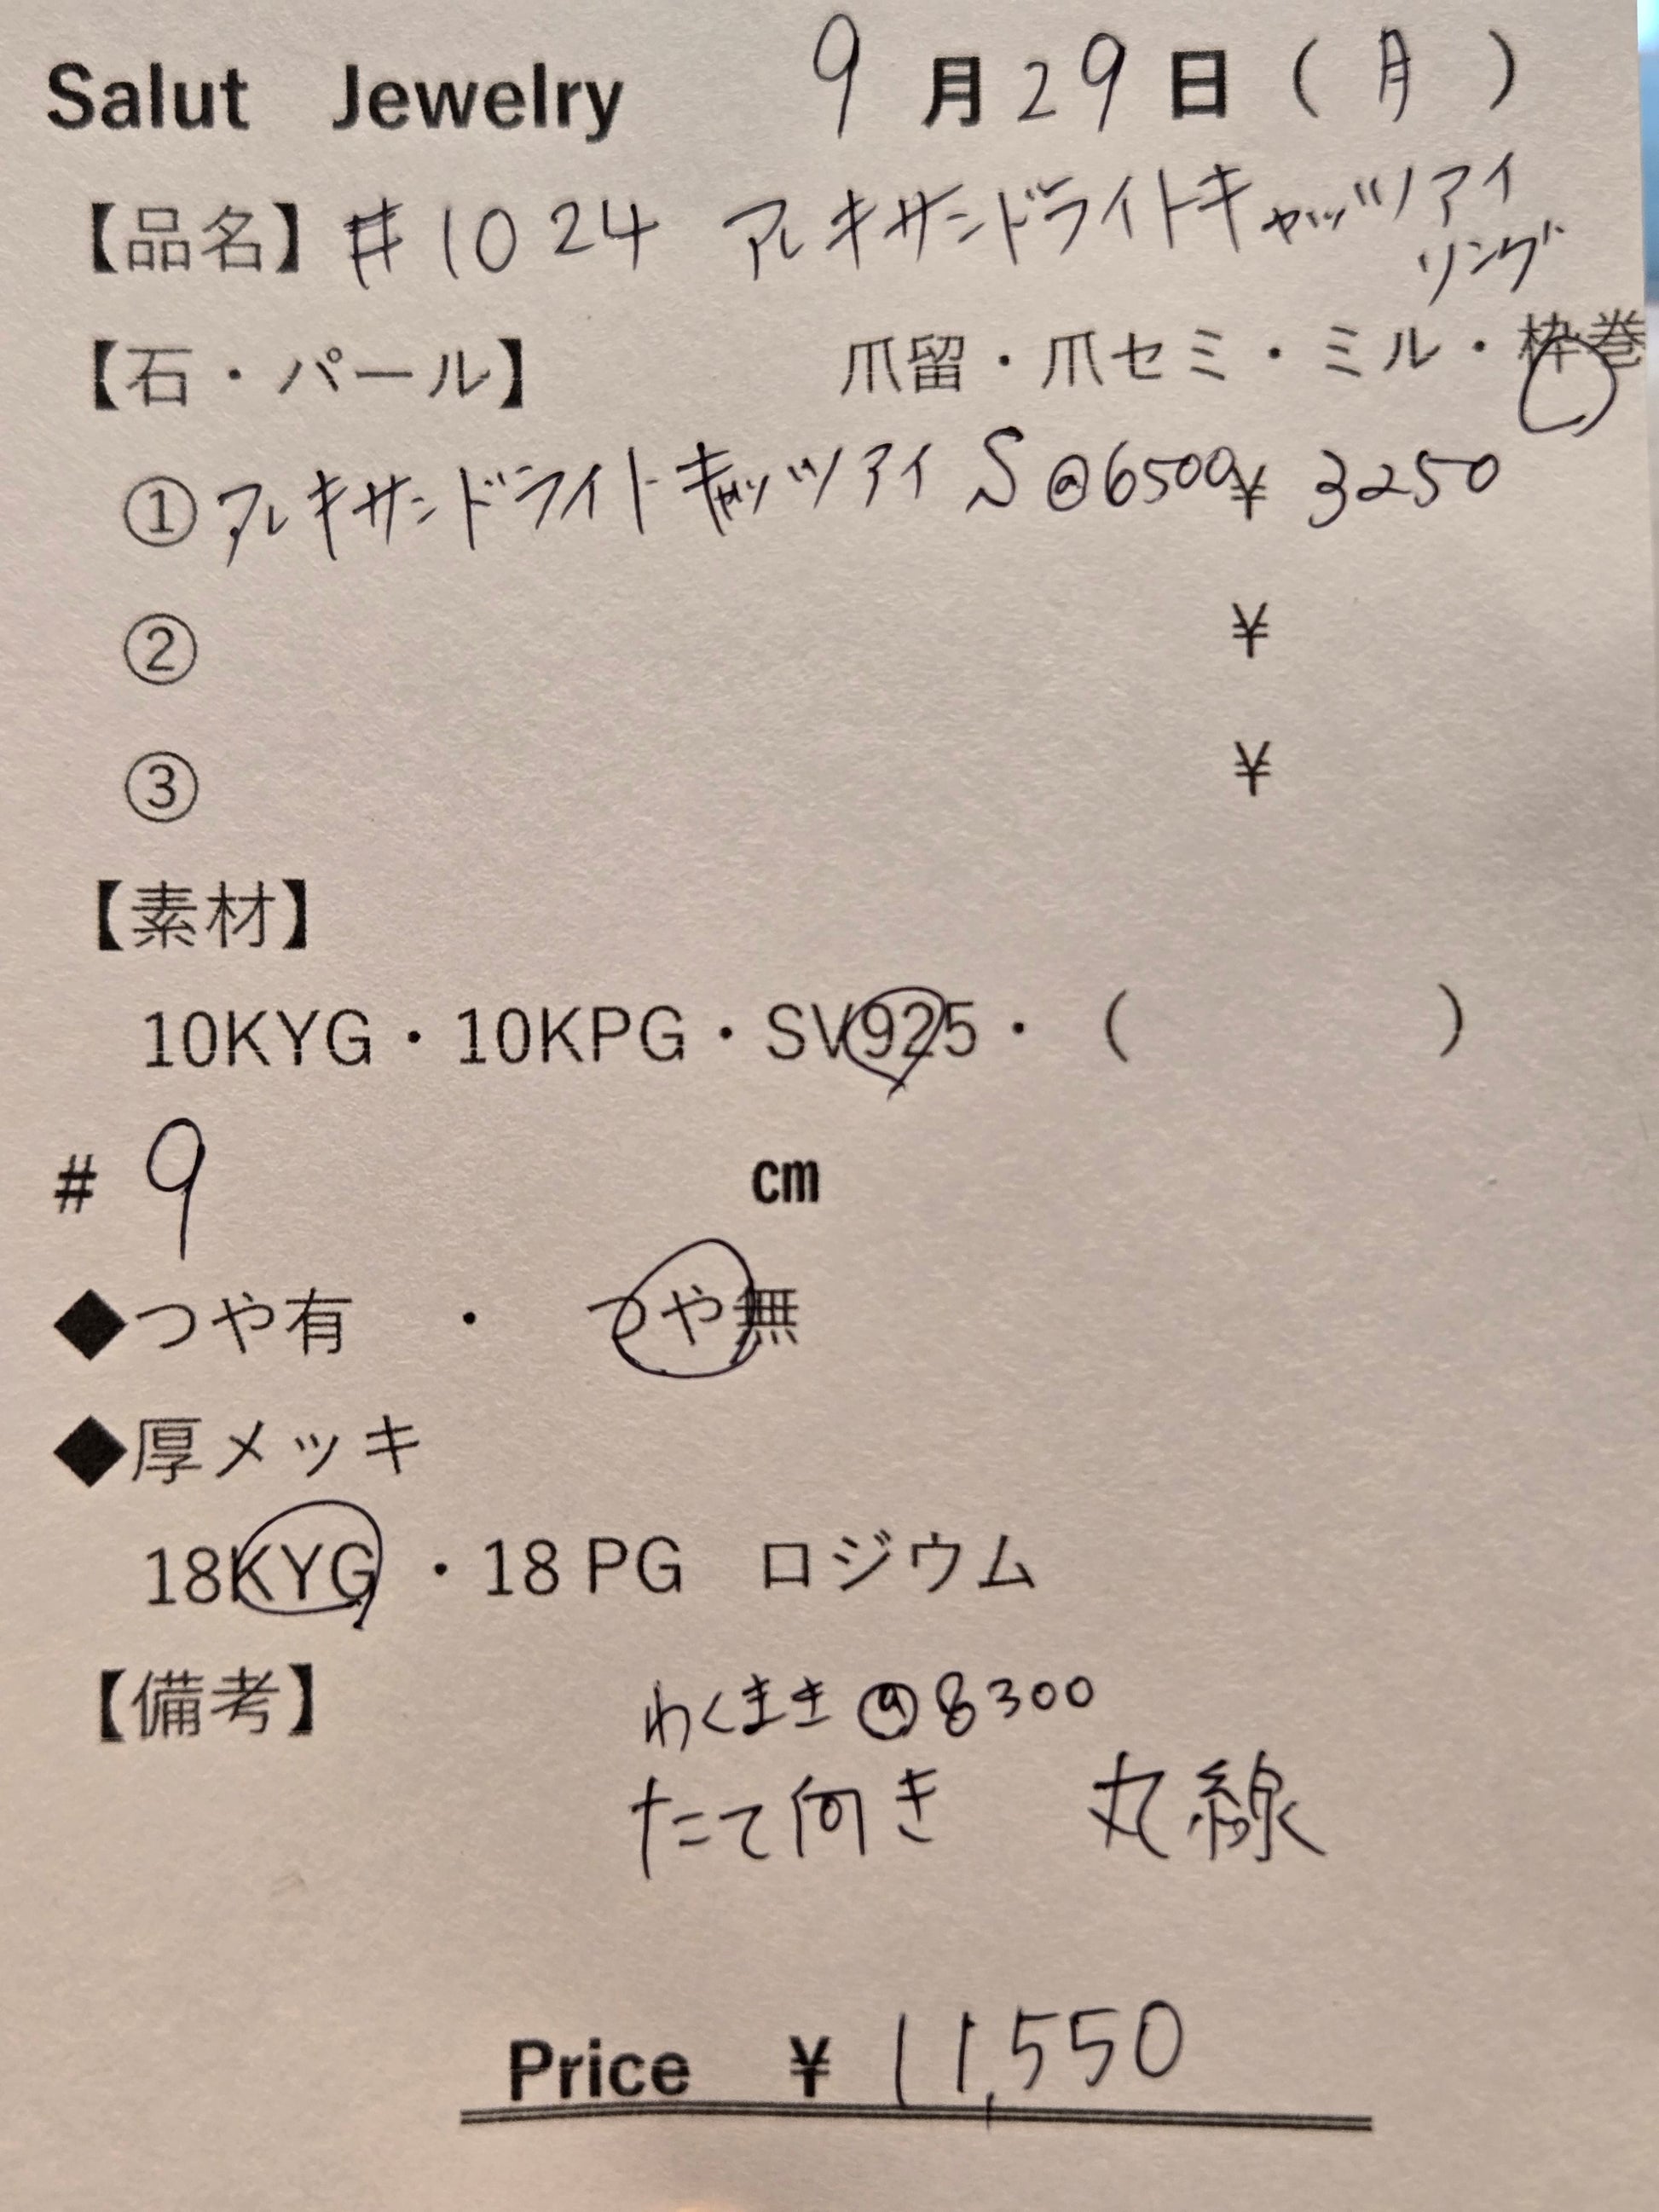 Salut Jewelry 9月29日（月）
【品名】#1024 アレキサンドライトキャッツアイ
リング
【石・パール】 爪留・爪セミ・ミル・枠巻
①アレキサンドライトキャッツアイ S @6500 ¥ 3250
② ¥
③ ¥
【素材】
10KYG・10KPG・SV925・（ ）
# 9 cm
◆つや有 ・ つや無
◆厚メッキ
18KYG ・18 PG ロジウム
【備考】 わくまき @8300
たて向き 丸線
Price ¥ 11,550